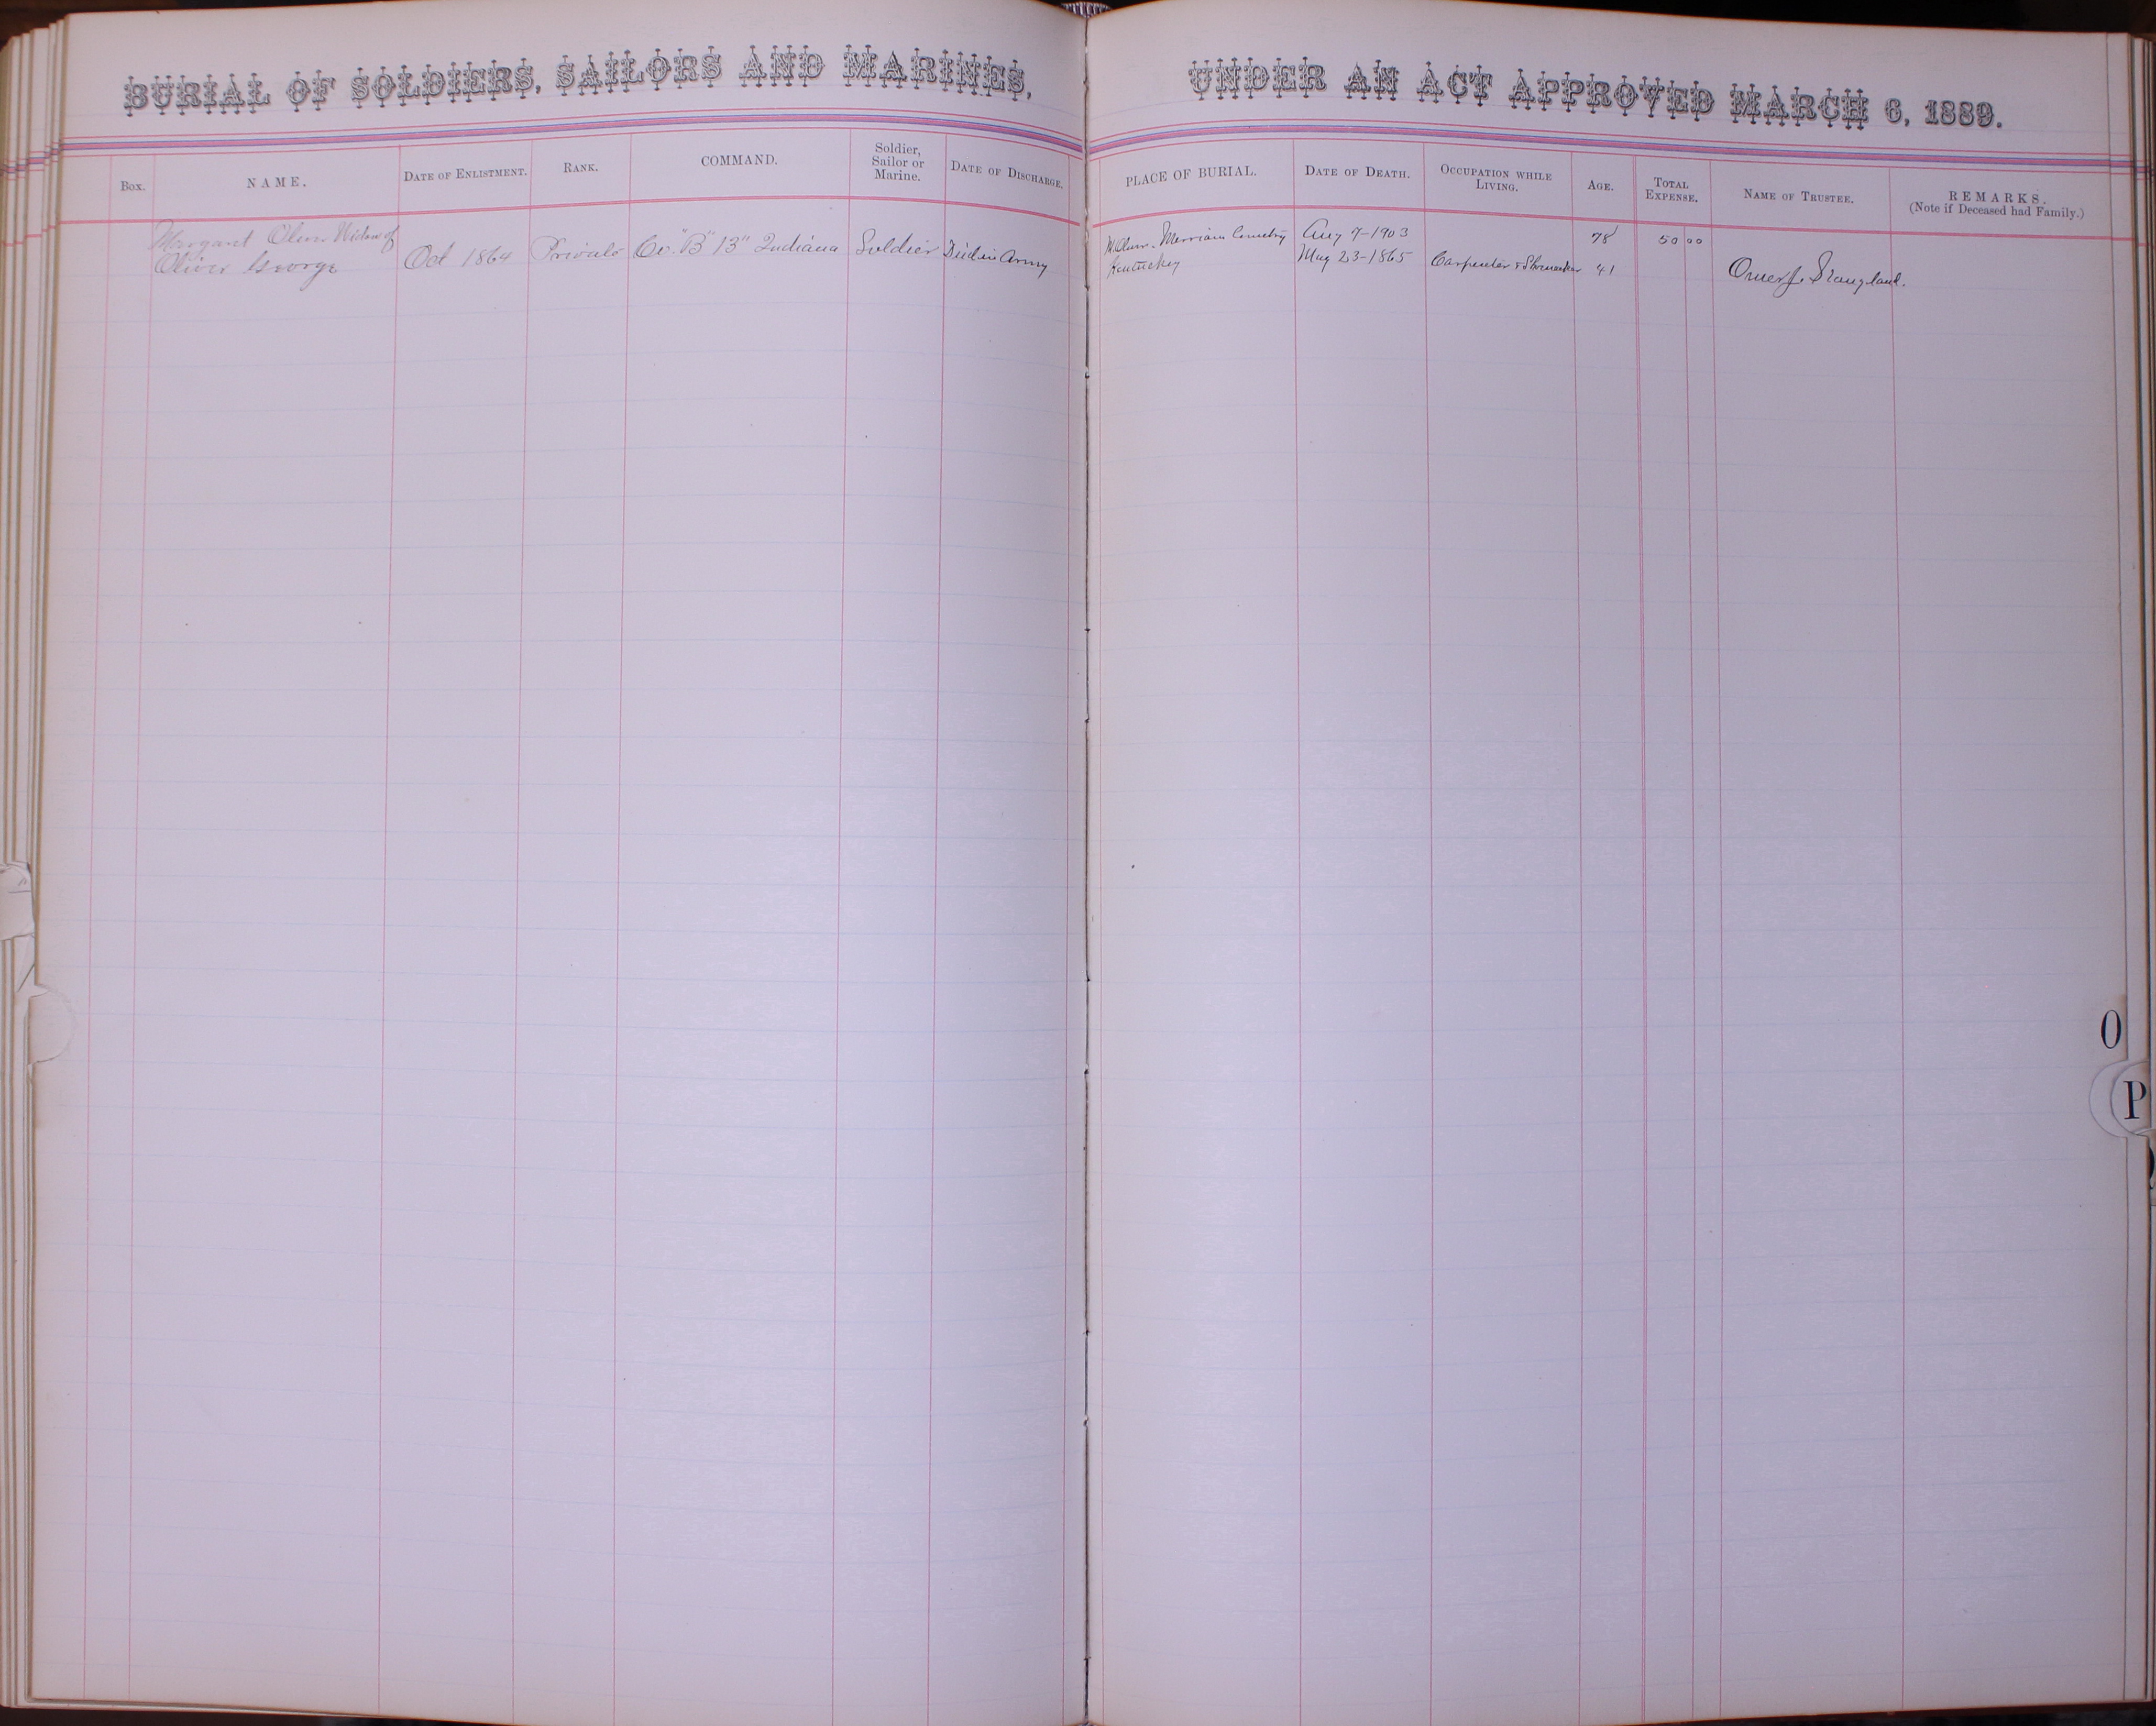 BURIAL OF SOLDIERS, SAILORS AND MARINES,
UNDER AN ACT APPROVED MARCH 6, 1889.
Box.
NAME.
DATE OF ENLISTMENT.
RANK.
COMMAND.
Soldier,
Sailor or
Marine.
DATE OF DISCHARGE.
PLACE OF BURIAL.
DATE OF DEATH.
OCCUPATION WHILE
LIVING.
AGE.
TOTAL
EXPENSE.
NAME OF TRUSTEE.
REMARKS.
(Note if Deceased had Family.)
Margaret Oliver Widow of
Oliver George
Oct 1864
Private
Co. "B" 13" Indiana
Soldier
Died in Army
Merriam Cemetry
Kentuckey
Aug 7-1903
23-1865
Carpenter & Shoemaker
78
41
50 00
Omer J. Stangland.
O
P